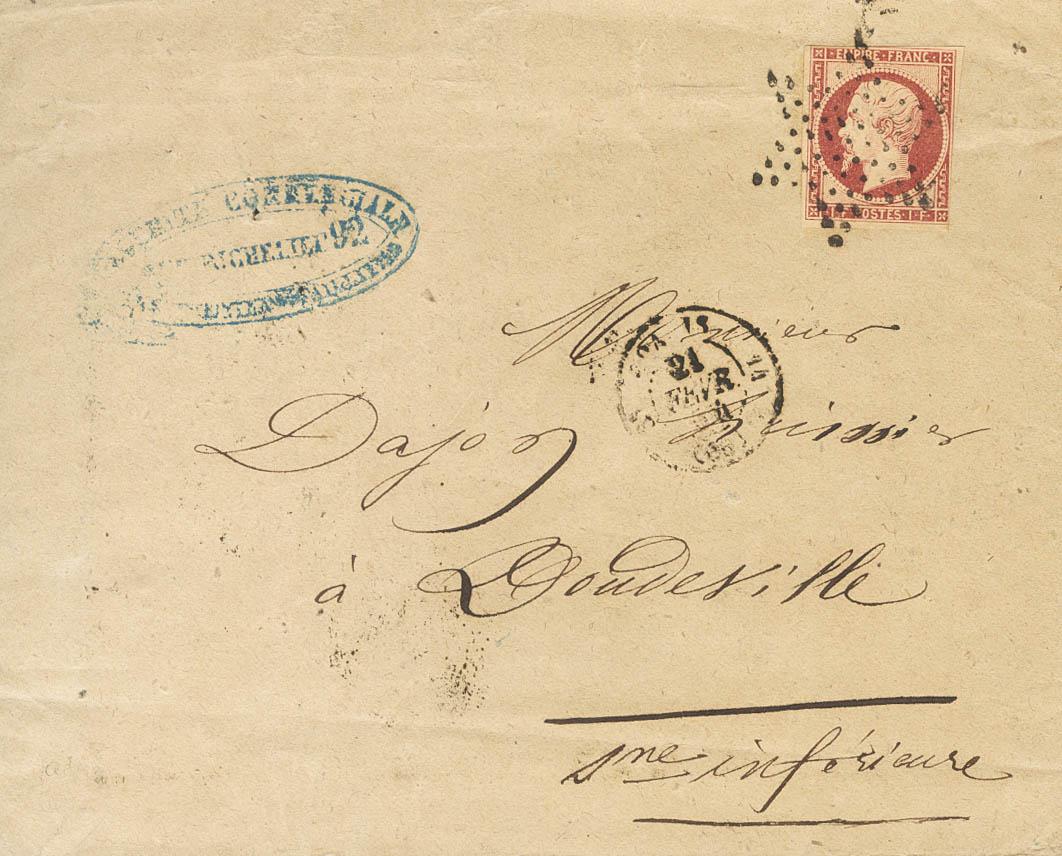 EMPIRE FRANC
1 F. POSTES 1 F.
COMMERCIALE
Monsieur
21
FEVR
(60)
Dajon huissier
à Doudeville
Sne inférieure